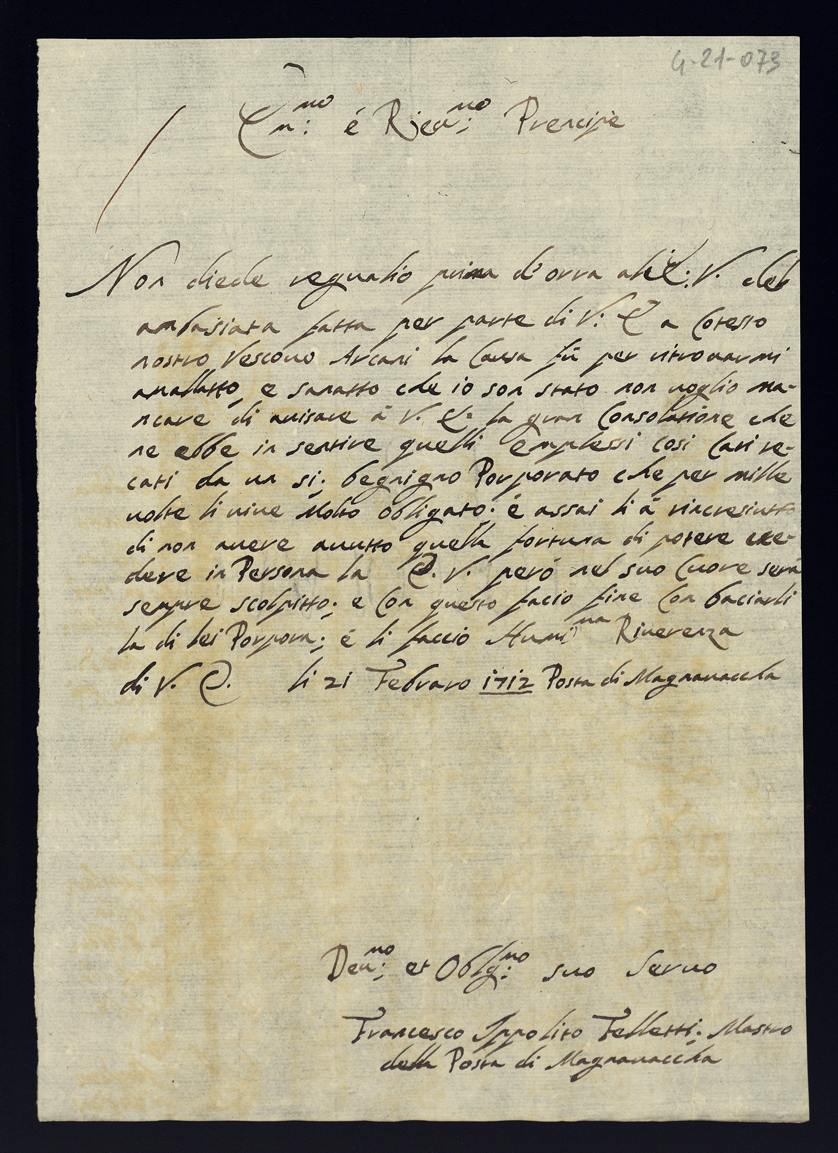 G-21-073
Em:mo é Rieu:mo Prencipe
Non diede regualio prima d'orra al E: V. del
ambasiata fatta per parte di V: E a Cotesto
nostro Vescouo Arcani la Causa fú per ritrouarmi
amallatto, e sanatto che io son stato non uoglio ma-
ncare di auisare á V. E: la gran Consolatione che
ne ebbe in sentire quelli Complessi cosi Cari re-
cati da un si: begnigno Porporato che per mille
uolte li uiue Molto obligato: é assai li á rincresiutto
di non auere auutto quella fortuna di potere
dere in Persona la E. V. peró nel suo Cuore será
sempre scolpitto; e Con questo facio fine Con baciarli
la di lei Porpora; é li faccio Humi:ma Riuerenza
di V. E. li 21 Febraro 1712 Posta di Magnauaccha
Deu:mo et Oblg:mo suo Seruo
Francesco Ippolito Felletti: Mastro
della Posta di Magnauaccha